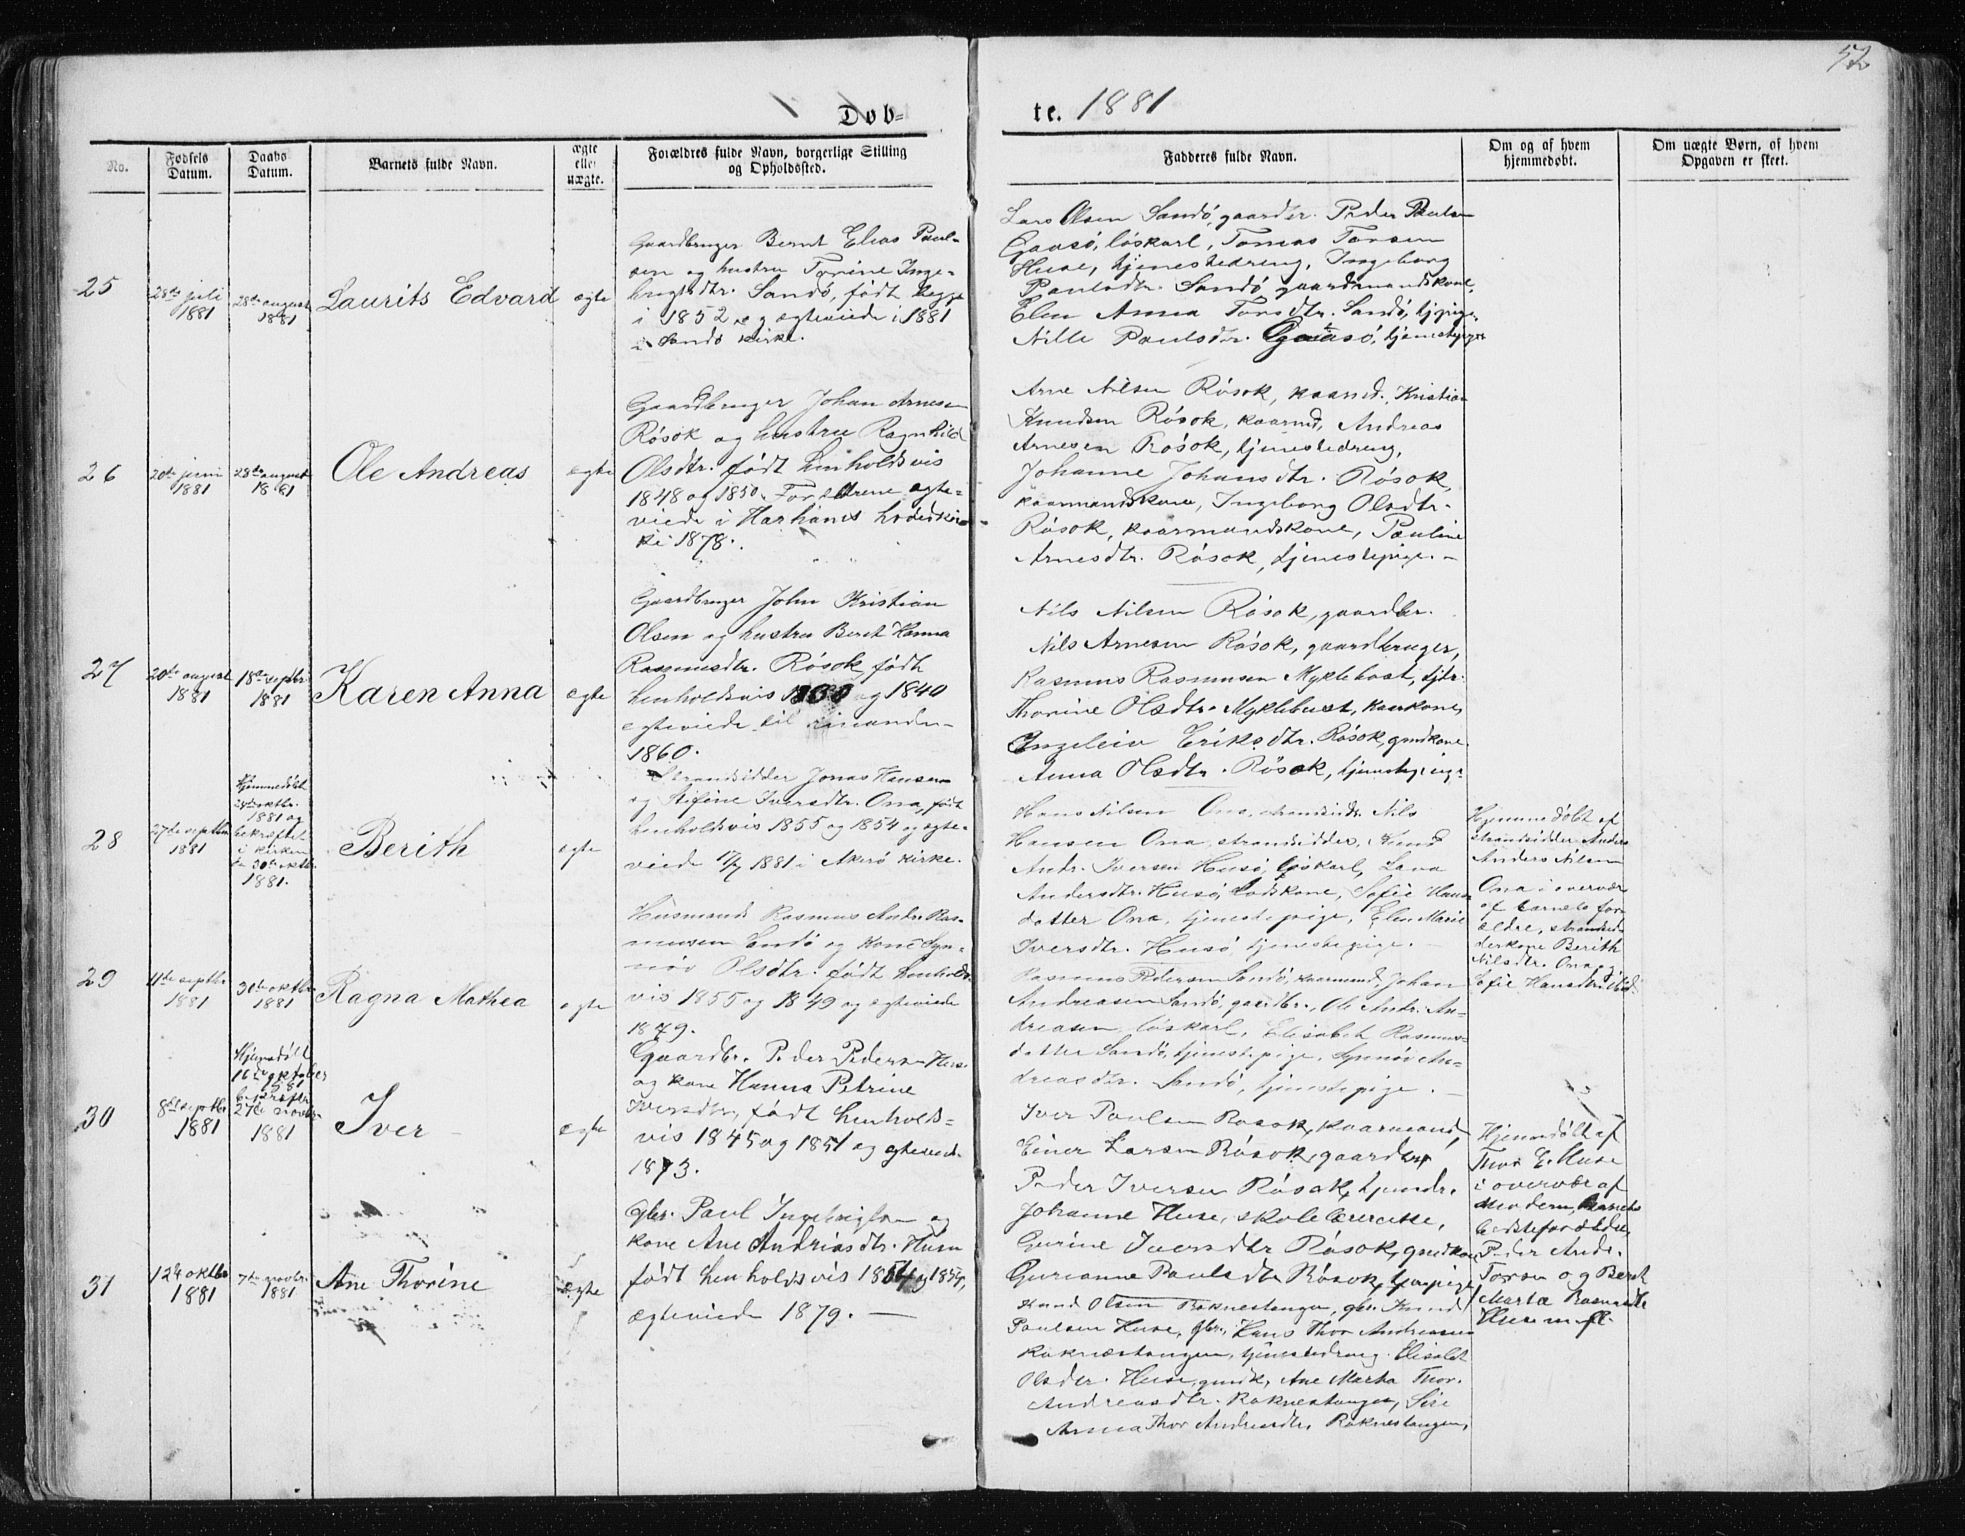 52
Døb-
te. 1881
No.
Fødsels Datum.
Daabs Datum.
Barnets fulde Navn.
ægte eller uægte.
Forældres fulde Navn, borgerlige Stilling
og Opholdssted.
Fadderes fulde Navn.
Om og af hvem
hjemmedøbt.
Om uægte Børn, af hvem
Opgaven er skeet.
25
28de juli
1881
28de august
1881
Laurits Edvard
ægte
Gaardbruger Bernt Elias Paul-
sen og hustru Torine Inge-
brigtsdtr. Sandø, født begge
i 1852 og ægteviede i 1881
i Sandø kirke.
Lars Olsen Sandø, gaardbr. Peder Paulsen
Gaasø, løskarl, Tomas Torsen
Huse, tjenestedreng, Ingeborg
Paulsdtr. Sandø gaardmandskone,
Elen Anna Torsdtr. Sandø, tjpige.
Nille Paulsdtr. Gaasø, tjenestepige
26
20de juni
1881
28de august
1881
Ole Andreas
ægte
Gaardbruger Johan Arnesen
Røsok og hustru Ragnhild
Olsdtr. født henholdsvis
1848 og 1850. Forældrene ægte-
viede i Harhams hovedkir-
ke i 1878.
Arne Nilsen Røsok, kaarmd., Kristian
Knudsen Røsok, kaarmd, Andreas
Arnesen Røsok, tjenestedreng,
Johanne Johansdtr. Røsok,
kaarmandskone, Ingeborg Olsdtr.
Røsok, kaarmandskone, Pauline
Arnesdtr. Røsok, tjenestepige. -
27
20de august
1881
18de septbr.
1881
Karen Anna
ægte
Gaardbruger John Kristian
Olsen og hustru Berit Hanna
Rasmusdtr. Røsok, født
henholdsvis og 1840
ægteviede til hinanden
1860.
Nils Nilsen Røsok, gaardbr.
Nils Arnesen Røsok, gaardbruger,
Rasmus Rasmusen Myklebost, tjdr.
Thorine Olsdtr. Myklebust, kaarkone,
Ingeleiv Eriksdtr. Røsok, gmdkone
Anna Olsdtr. Røsok, tjenestepige.
28
27de septbr.
1881
Hjemmedøbt
24de oktbr.
1881 og
bekræftet
i kirken
30te oktbr.
1881.
Berith
ægte
Strandsidder Jonas Hansen
og Stifine Iversdtr. Ona, født
henholdsvis 1855 og 1854 og ægte-
viede 17/7 1881 i Akerø kirke.
Hans Nilsen Ona, strandsidr. Nils
Hansen Ona, strandsidder, Knud
Andr. Iversen Husø, løskarl, Lava
Andersdtr. Husø, Ladskone, Sofie Hans-
datter Ona, tjenestepige, Elen Marie
Iversdtr. Husø tjenestepige. -
Hjemmedøbt af
strandsidder Anders
Anders Nilsen
Ona i overvær
af barnets for-
ældre, strandsid-
derkone Berith
Nilsdtr. Ona og
Sofie Hansdtr.
29
11te septbr.
1881
30te oktbr.
1881
Ragna Mathea
ægte
Husmand Rasmus Andr. Ras-
musen Sandø og kone Syn-
nøv Olsdtr. født henholds-
vis 1855 og 1849 og ægteviede
1879.
Rasmus Pedersen Sandø, kaarmand, Johan
Andreasen Sandø, gaardbr., Ole Andr. An-
dreasen, løskarl, Elisabet Rasmus-
datter Sandø, tjenestepige, Synnøv An-
dreasdtr. Sandø, tjenestepige. -
30
8de septbr.
1881
Hjemdøbt
16de oktober
1881
bekræftet
27de novbr.
1881
Iver
ægte
Gaardbr. Peder Pedersen Huse
og kone Hanna Petrine
Iversdtr. født henholds-
vis 1845 og 1851 og ægteviede
1873.
Iver Paulsen Røsok, kaarmand,
Einer Larsen Røsok, gaardbr,
Peder Iversen Røsok, tjendr.
Johanne Huse, skolelærerske,
Gurine Iversdtr Røsok, gmdkone
Gurianne Paulsdtr Røsok, tjenpige
Hjemmdøbt af
Thor E. Huse
i overvær af
moderen, barnets
bedsteforældre,
Peder Andr.
Torsen og Berit
Marta Rasmusdtr
Huse m. fl.
31
12te oktbr.
1881
7de novbr.
1881
Ane Thorine
ægte
gbr. Paul Ingebrigtsen og
kone Ane Andreasdtr. Husø
født henholdsvis 1854 og 1854,
ægteviede 1879. -
Knud Olsen Roknestangen, gbr. Knud
Paulsen Huse, gbr., Hans Thor Andreassen
Roknestangen, tjenestedreng. Elisabet
Olsdtr. Huse, gmdk, Ane Marta Thor.
Andreasdtr. Roknestangen, Sire
Anna Thor Andreasdtr. Roknestangen,